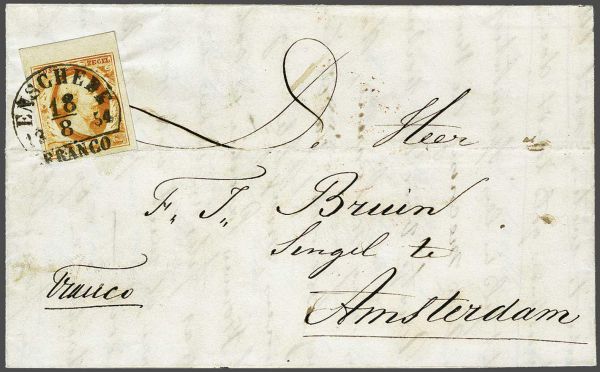 ZEGEL
ENSCHEDE
18
8
54
FRANCO
Heer
F. J. Bruin
Singel te
Amsterdam
Franco